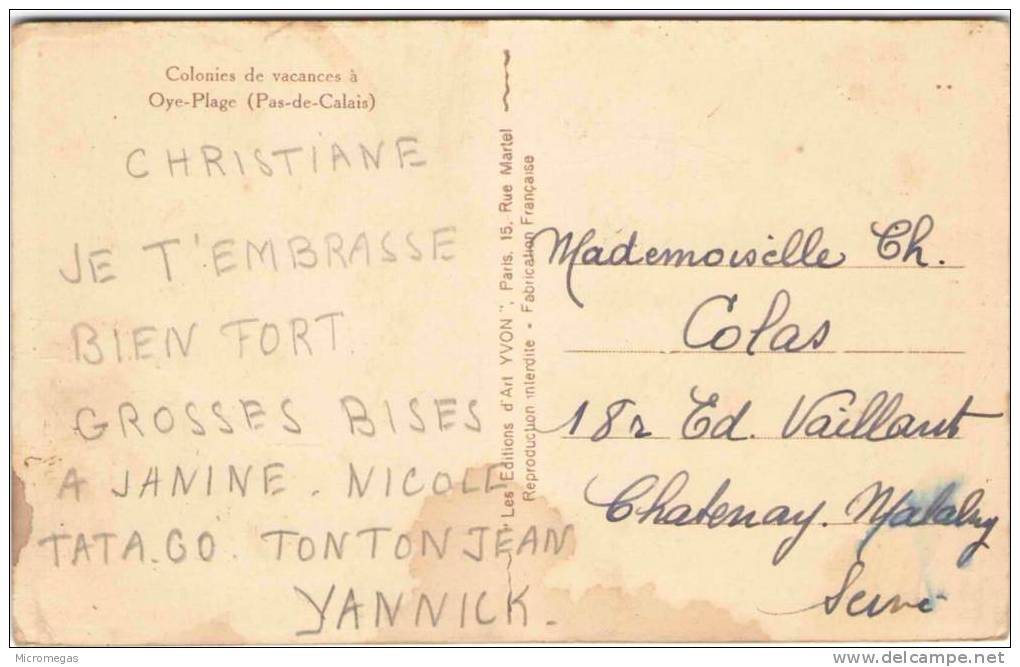 Colonies de vacances à
Oye-Plage (Pas-de-Calais)
CHRISTIANE
JE T'EMBRASSE
BIEN FORT.
GROSSES BISES
A JANINE. NICOLE
TATA.GO. TONTON JEAN
YANNICK.
"Les Editions d'Art YVON", Paris. 15, Rue Martel
Reproduction interdite - Fabrication Française
Mademoiselle Ch.
Colas
18 r Ed. Vaillant
Chatenay. Malabry
Seine
Micromegas
delcampe.net